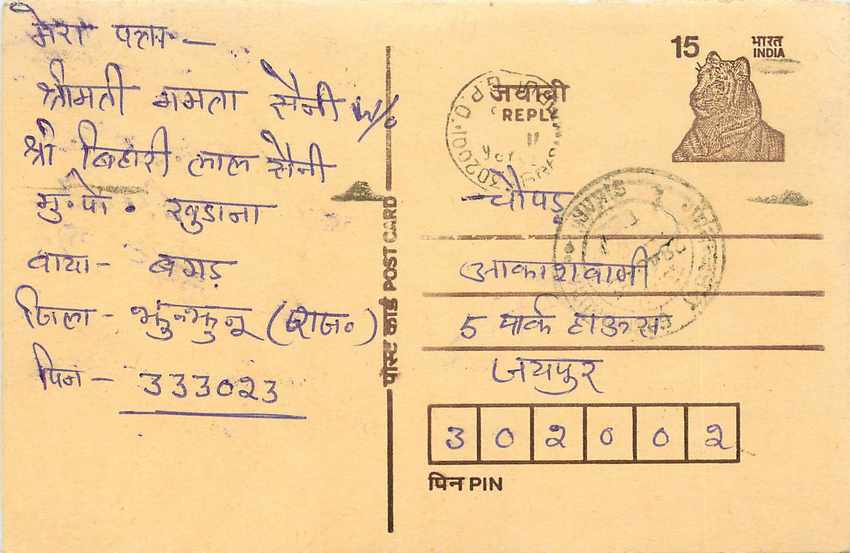 मेरा पता -
श्रीमती ममता सैनी w/o
श्री बिहारी लाल सैनी
मु. पो. खुडाना
वाया - बगड़
जिला - झुन्झुनू (राज०)
पिन - 333023
पोस्ट कार्ड POST CARD
15
भारत
INDIA
जवाबी
REPLY
G.P.O.
302001
चौपड़
आकाशवाणी
5 पार्क हाऊस
जयपुर
302002
पिन PIN